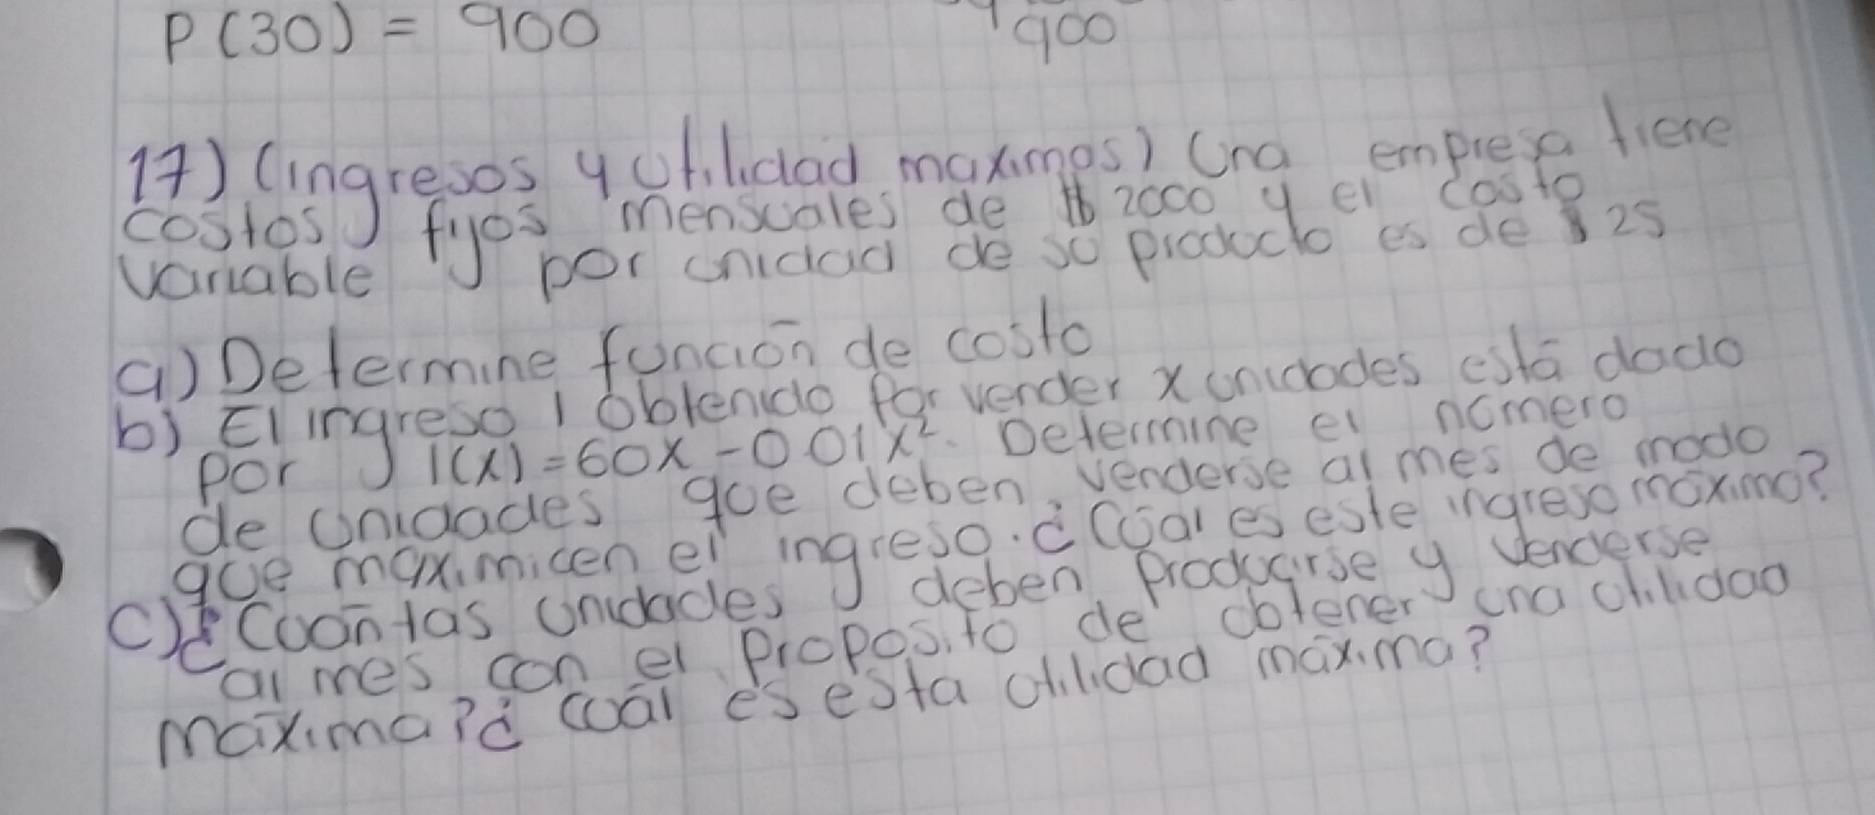 P(30) = 900
900
17) (ingresos y utilidad maximos) Una empresa tiene
costos fijos mensuales de $ 2000 y el costo
variable por unidad de su producto es de $ 25
a) Determine función de costo
b) El ingreso I obtenido por vender x unidades está dado
por I(x) = 60x - 0.01x². Determine el número
de unidades que deben venderse al mes de modo
que maximicen el ingreso. ¿Cuál es este ingreso máximo?
c) ¿Cuántas unidades deben producirse y venderse
al mes con el proposito de obtener una utilidad
máxima? ¿cuál es esta utilidad máxima?